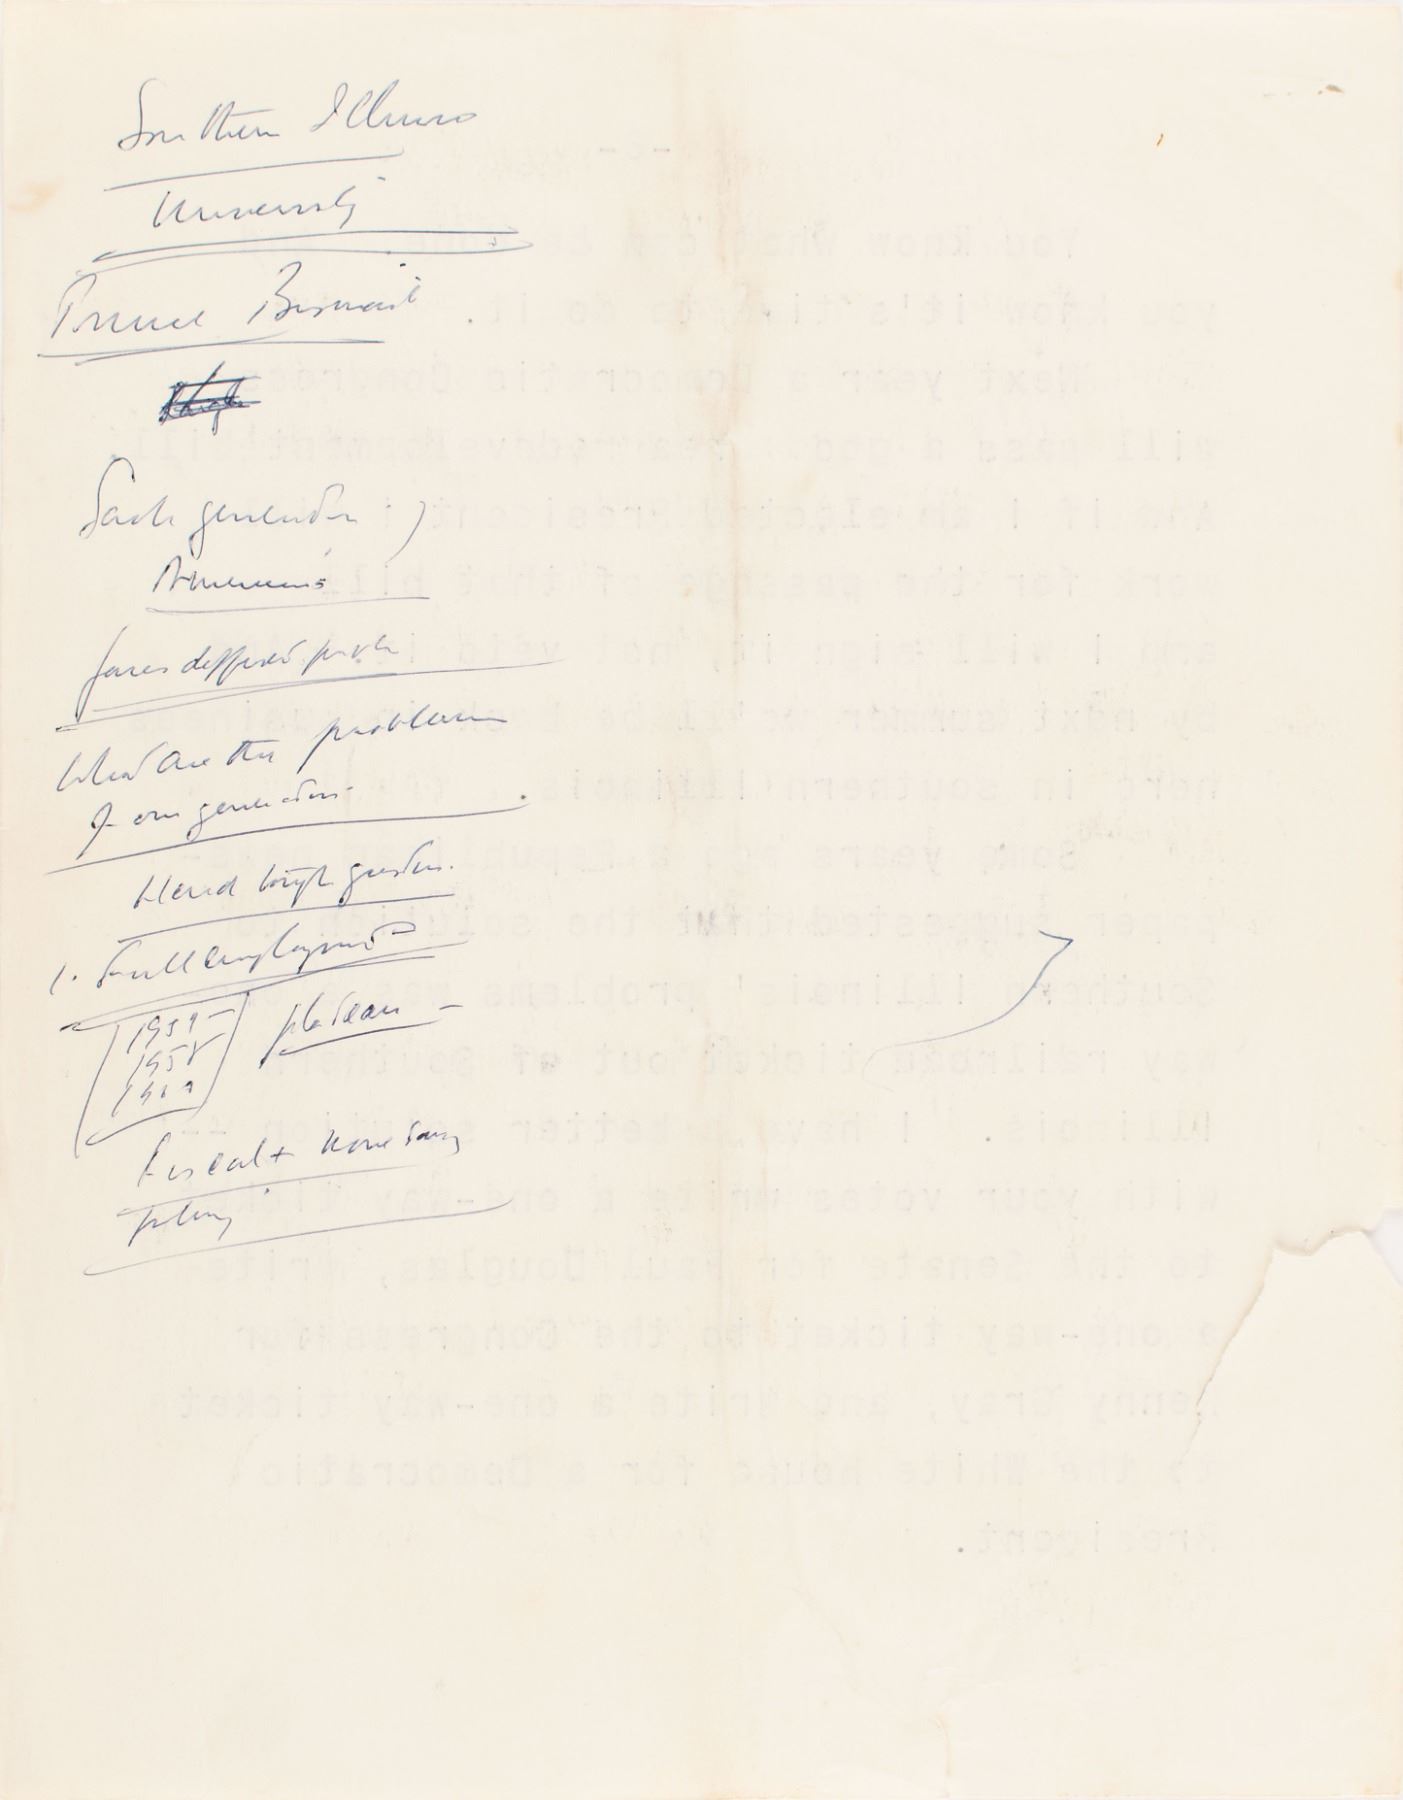 Southern Illinois
University
Prince Bismarck
Each generation
Americans
faces different prob
What are the problems
of our generation.
Hard tough questions.
1. Full employment
1954 -
1958
plateau -
Fiscal + monetary
policy
You know what can be done, and
you know it's time to do it.
Next year a Democratic Congress
will pass a good area redevelopment bill.
And if I am elected President I will
work for the passage of that bill
and I will sign it, not veto it
by next summer we'll be back in business
here in southern Illinois.
Some years ago a Republican
suggested that the solution to
Southern Illinois' problems was a one-
way railroad ticket out of Southern
Illinois. I have a better solution --
with your votes write a one-way ticket
to the Senate for Paul Douglas, write
a one-way ticket to the Congress for
Kenny Gray, and write a one-way ticket
to the White House for a Democratic
President.